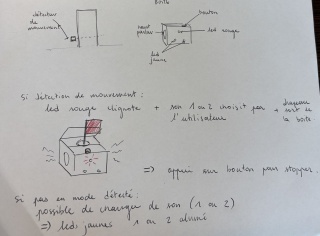 Boîte
détecteur
de
mouvement
bouton
haut
parleur
led rouge
led
jaune
Si détection de mouvement :
led rouge clignote + son 1 ou 2 choisit par + drapeau
l'utilisateur
sort de
la boîte
=> appui sur bouton pour stopper.
Si pas en mode détecté :
possible de changer de son (1 ou 2)
=> leds jaunes 1 ou 2 allumé